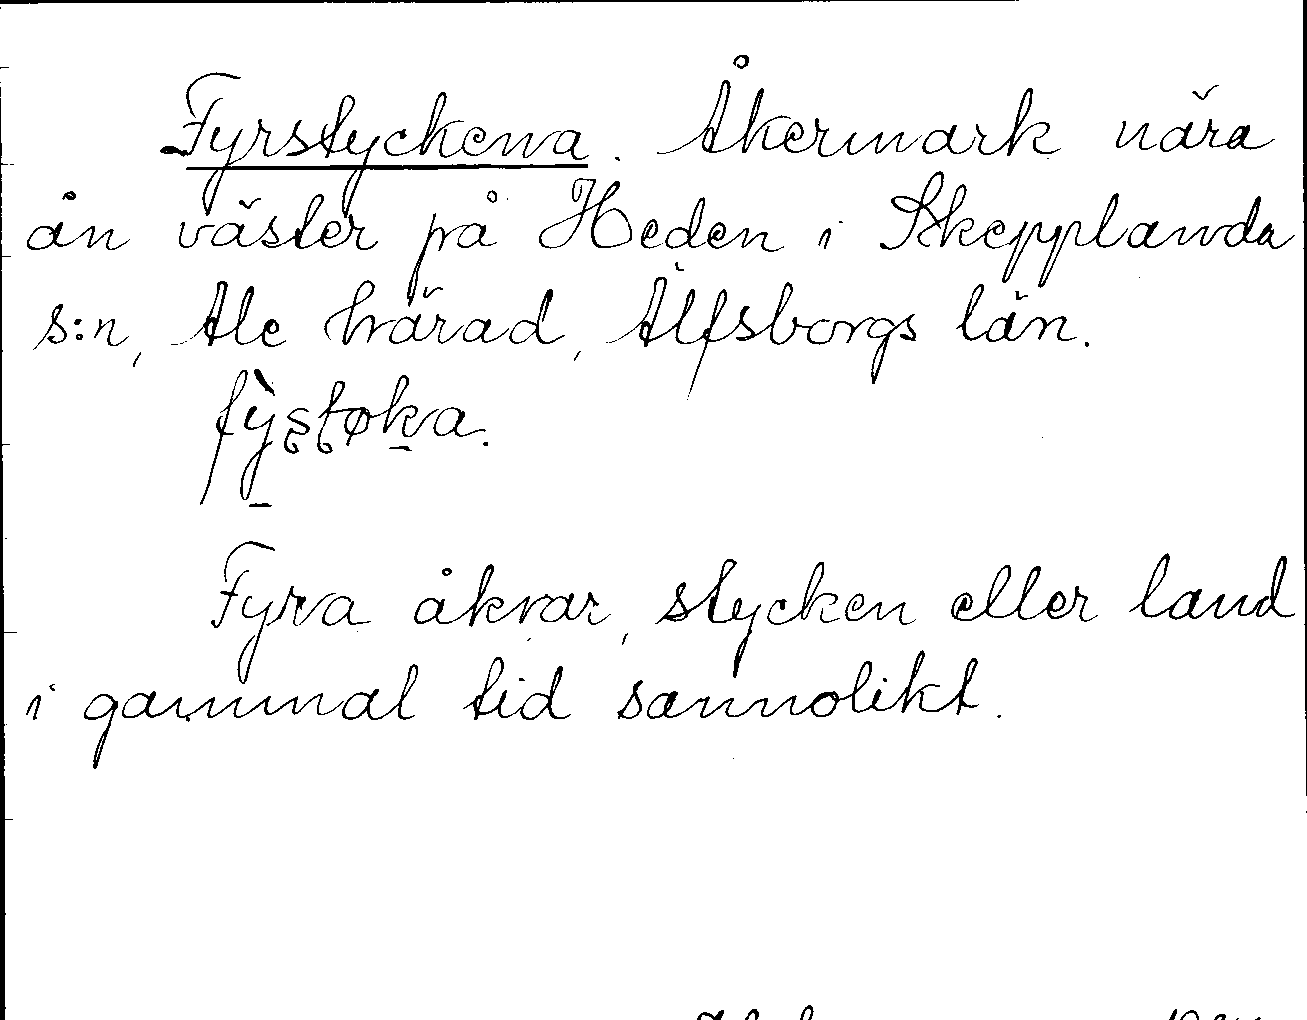 Fyrstyckena. Åkermark nära
ån väster på Heden i Skepplanda
s:n, Ale härad, Älfsborgs län.
fỳstøka.
Fyra åkrar, stycken eller land
i gammal tid sannolikt.